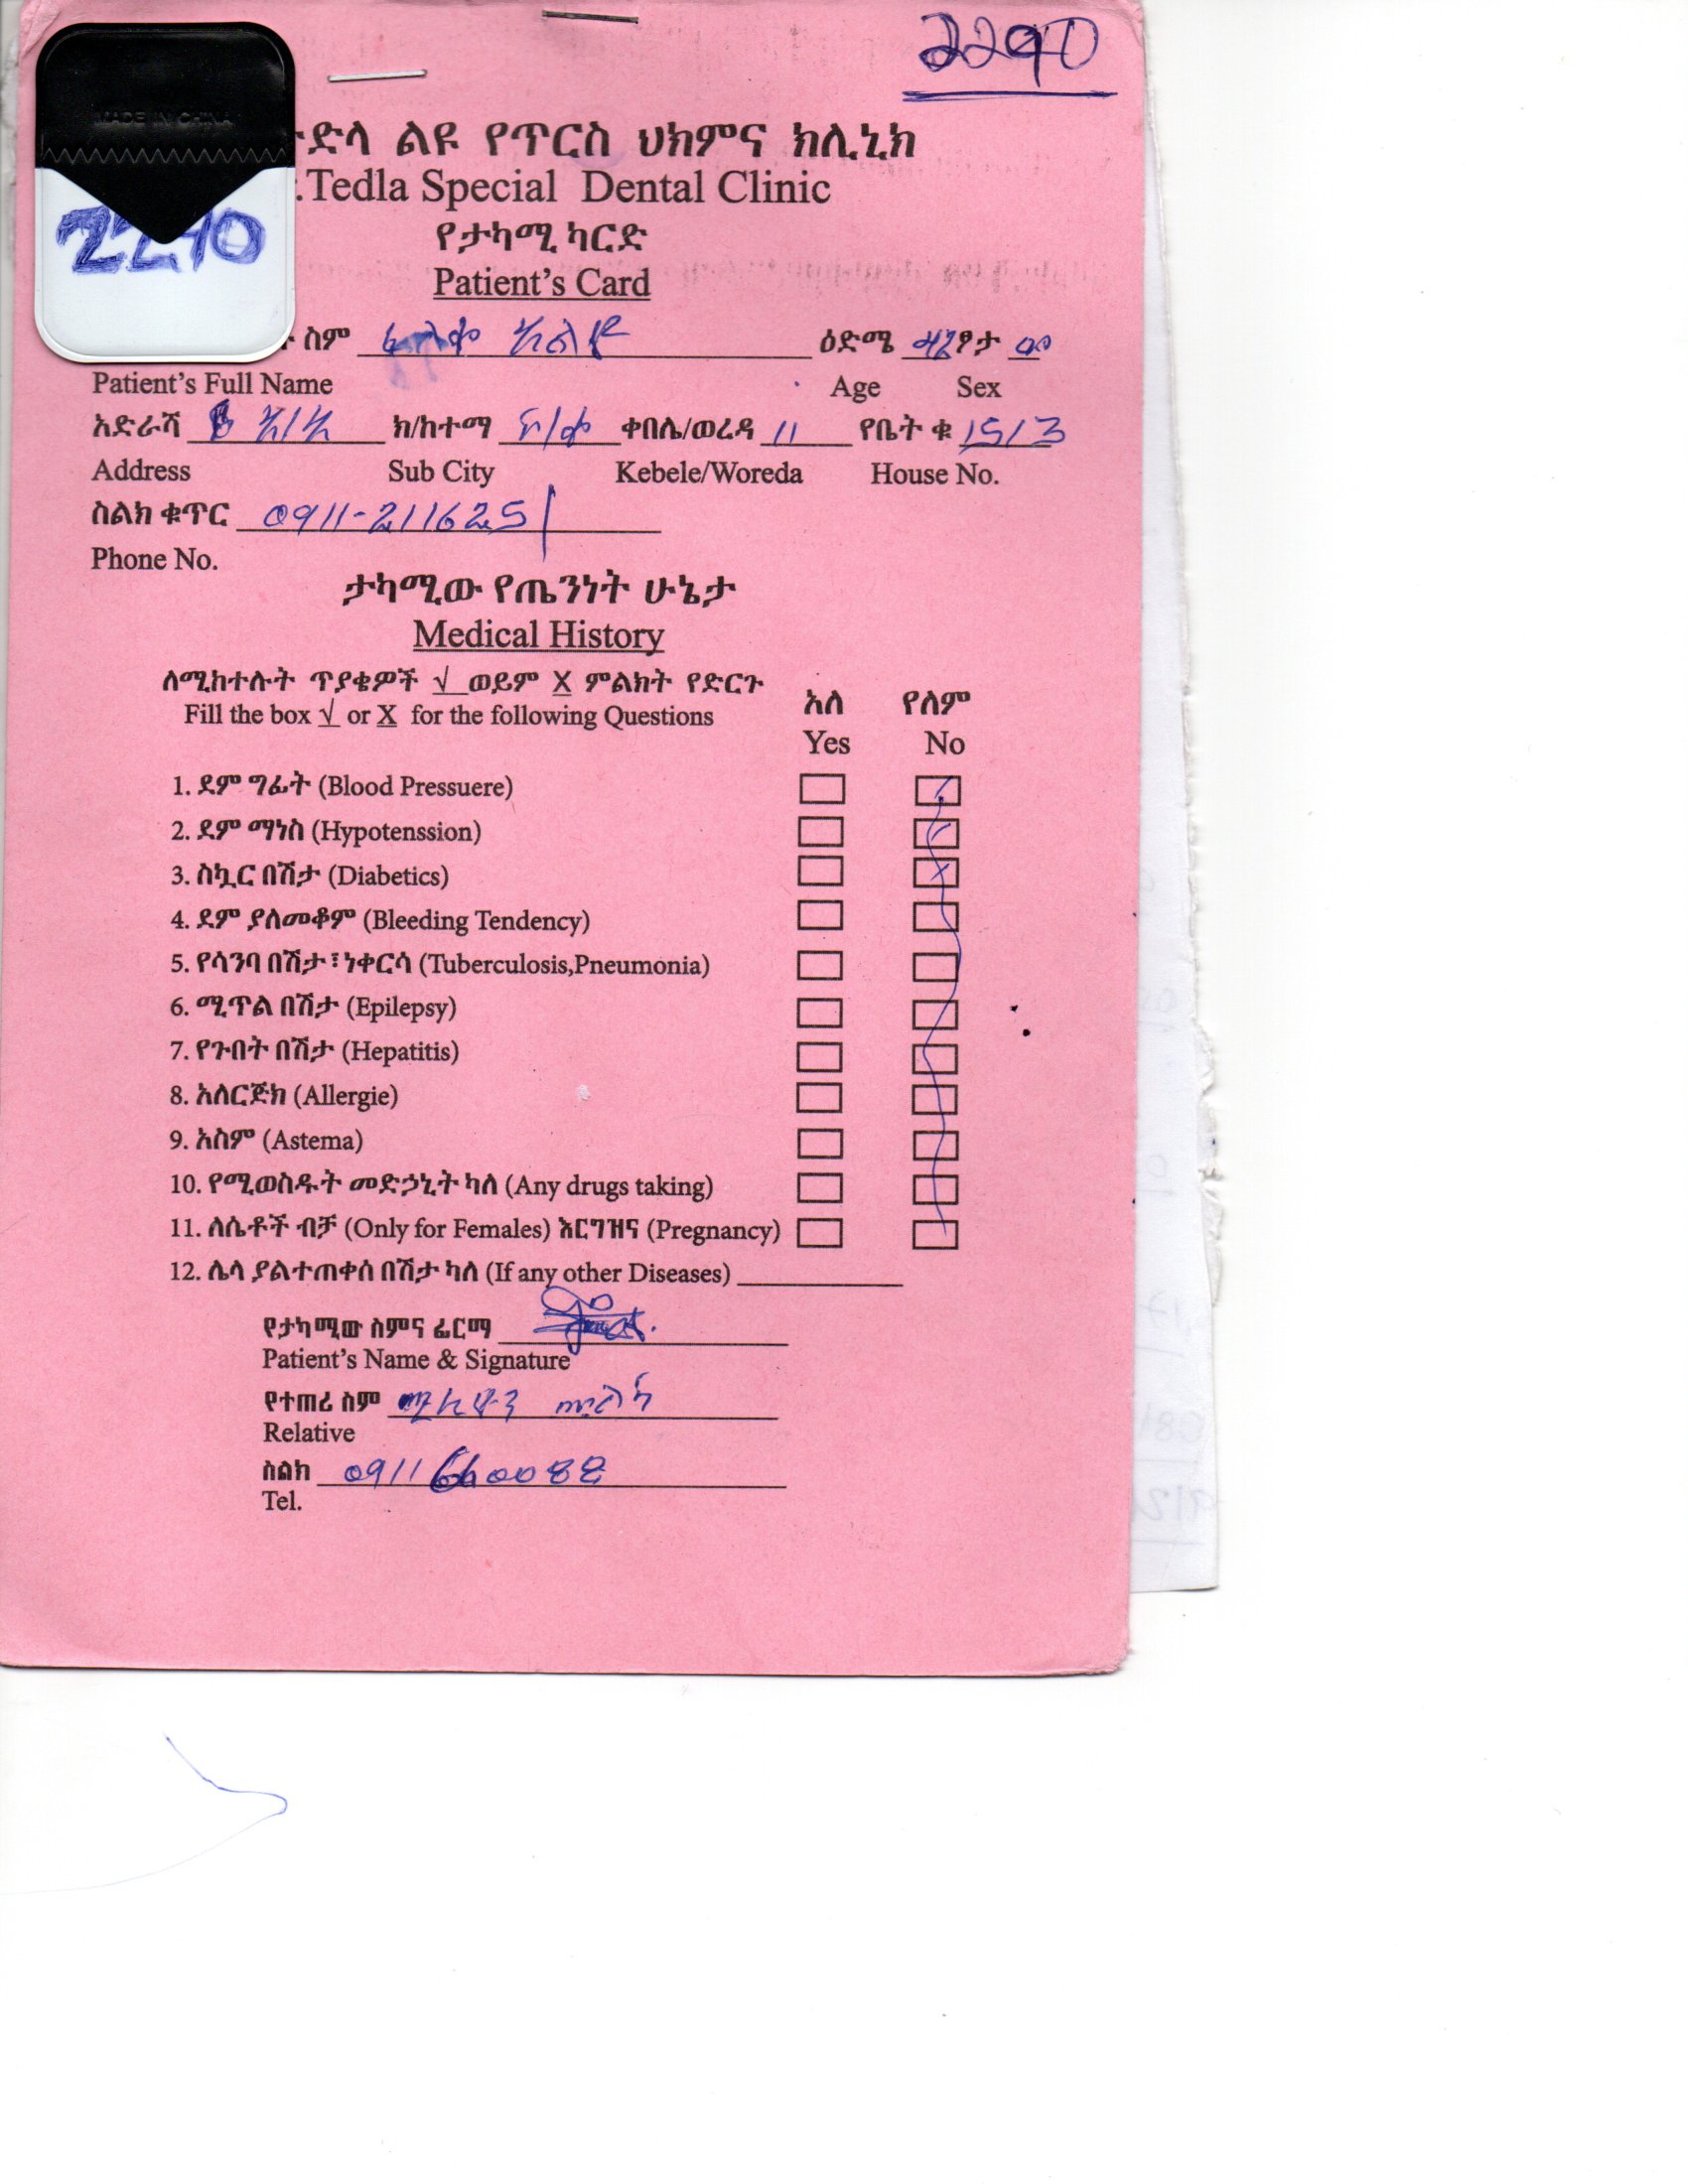 2290
MADE IN CHINA
ድላ ልዩ የጥርስ ህክምና ክሊኒክ
.Tedla Special Dental Clinic
2290
የታካሚ ካርድ
Patient's Card
ስም ዕድሜ ፆታ
Patient's Full Name Age Sex
አድራሻ አ/አ ክ/ከተማ ቀበሌ/ወረዳ 11 የቤት ቁ 1513
Address Sub City Kebele/Woreda House No.
ስልክ ቁጥር 0911-211625
Phone No.
ታካሚው የጤንነት ሁኔታ
Medical History
ለሚከተሉት ጥያቄዎች √ ወይም X ምልክት የድርጉ
Fill the box √ or X for the following Questions
አለ የለም
Yes No
1. ደም ግፊት (Blood Pressuere)
2. ደም ማነስ (Hypotenssion)
3. ስኳር በሽታ (Diabetics)
4. ደም ያለመቆም (Bleeding Tendency)
5. የሳንባ በሽታ፣ነቀርሳ (Tuberculosis,Pneumonia)
6. ሚጥል በሽታ (Epilepsy)
7. የጉበት በሽታ (Hepatitis)
8. አለርጅክ (Allergie)
9. አስም (Astema)
10. የሚወስዱት መድኃኒት ካለ (Any drugs taking)
11. ለሴቶች ብቻ (Only for Females) እርግዝና (Pregnancy)
12. ሌላ ያልተጠቀሰ በሽታ ካለ (If any other Diseases)
የታካሚው ስምና ፊርማ
Patient's Name & Signature
የተጠሪ ስም
Relative
ስልክ
Tel.